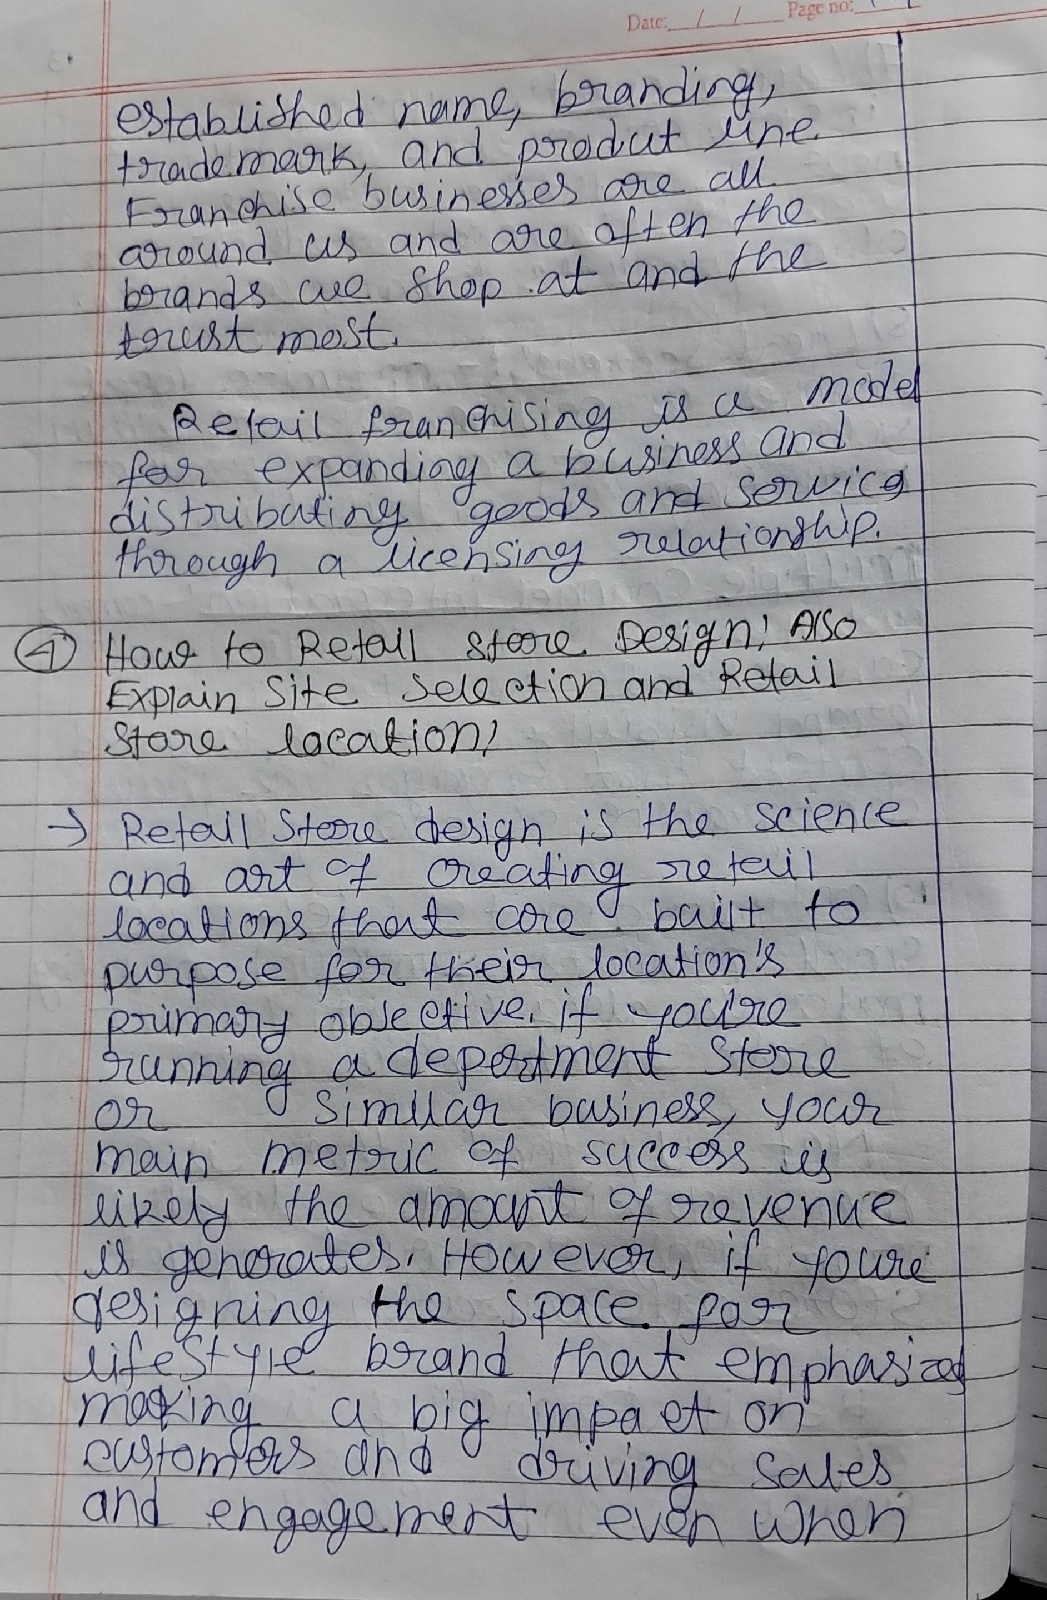 Date: / / Page no:
established name, branding,
trademark, and produt line.
Franchise businesses are all
around us and are often the
brands we shop at and the
trust most.
Retail franchising is a model
for expanding a business and
distributing goods and service
through a licensing relationship.
④ How to Retail Store Design! Also
Explain Site Selection and Retail
Store location!
→ Retail Store design is the science
and art of creating retail
locations that are built to
purpose for their location's
primary objective. if you're
running a department store
or similar business, your
main metric of success is
likely the amount of revenue
is generates. However, if you're
designing the space for
lifestyle brand that emphasized
making a big impact on
customers and driving sales
and engagement even when